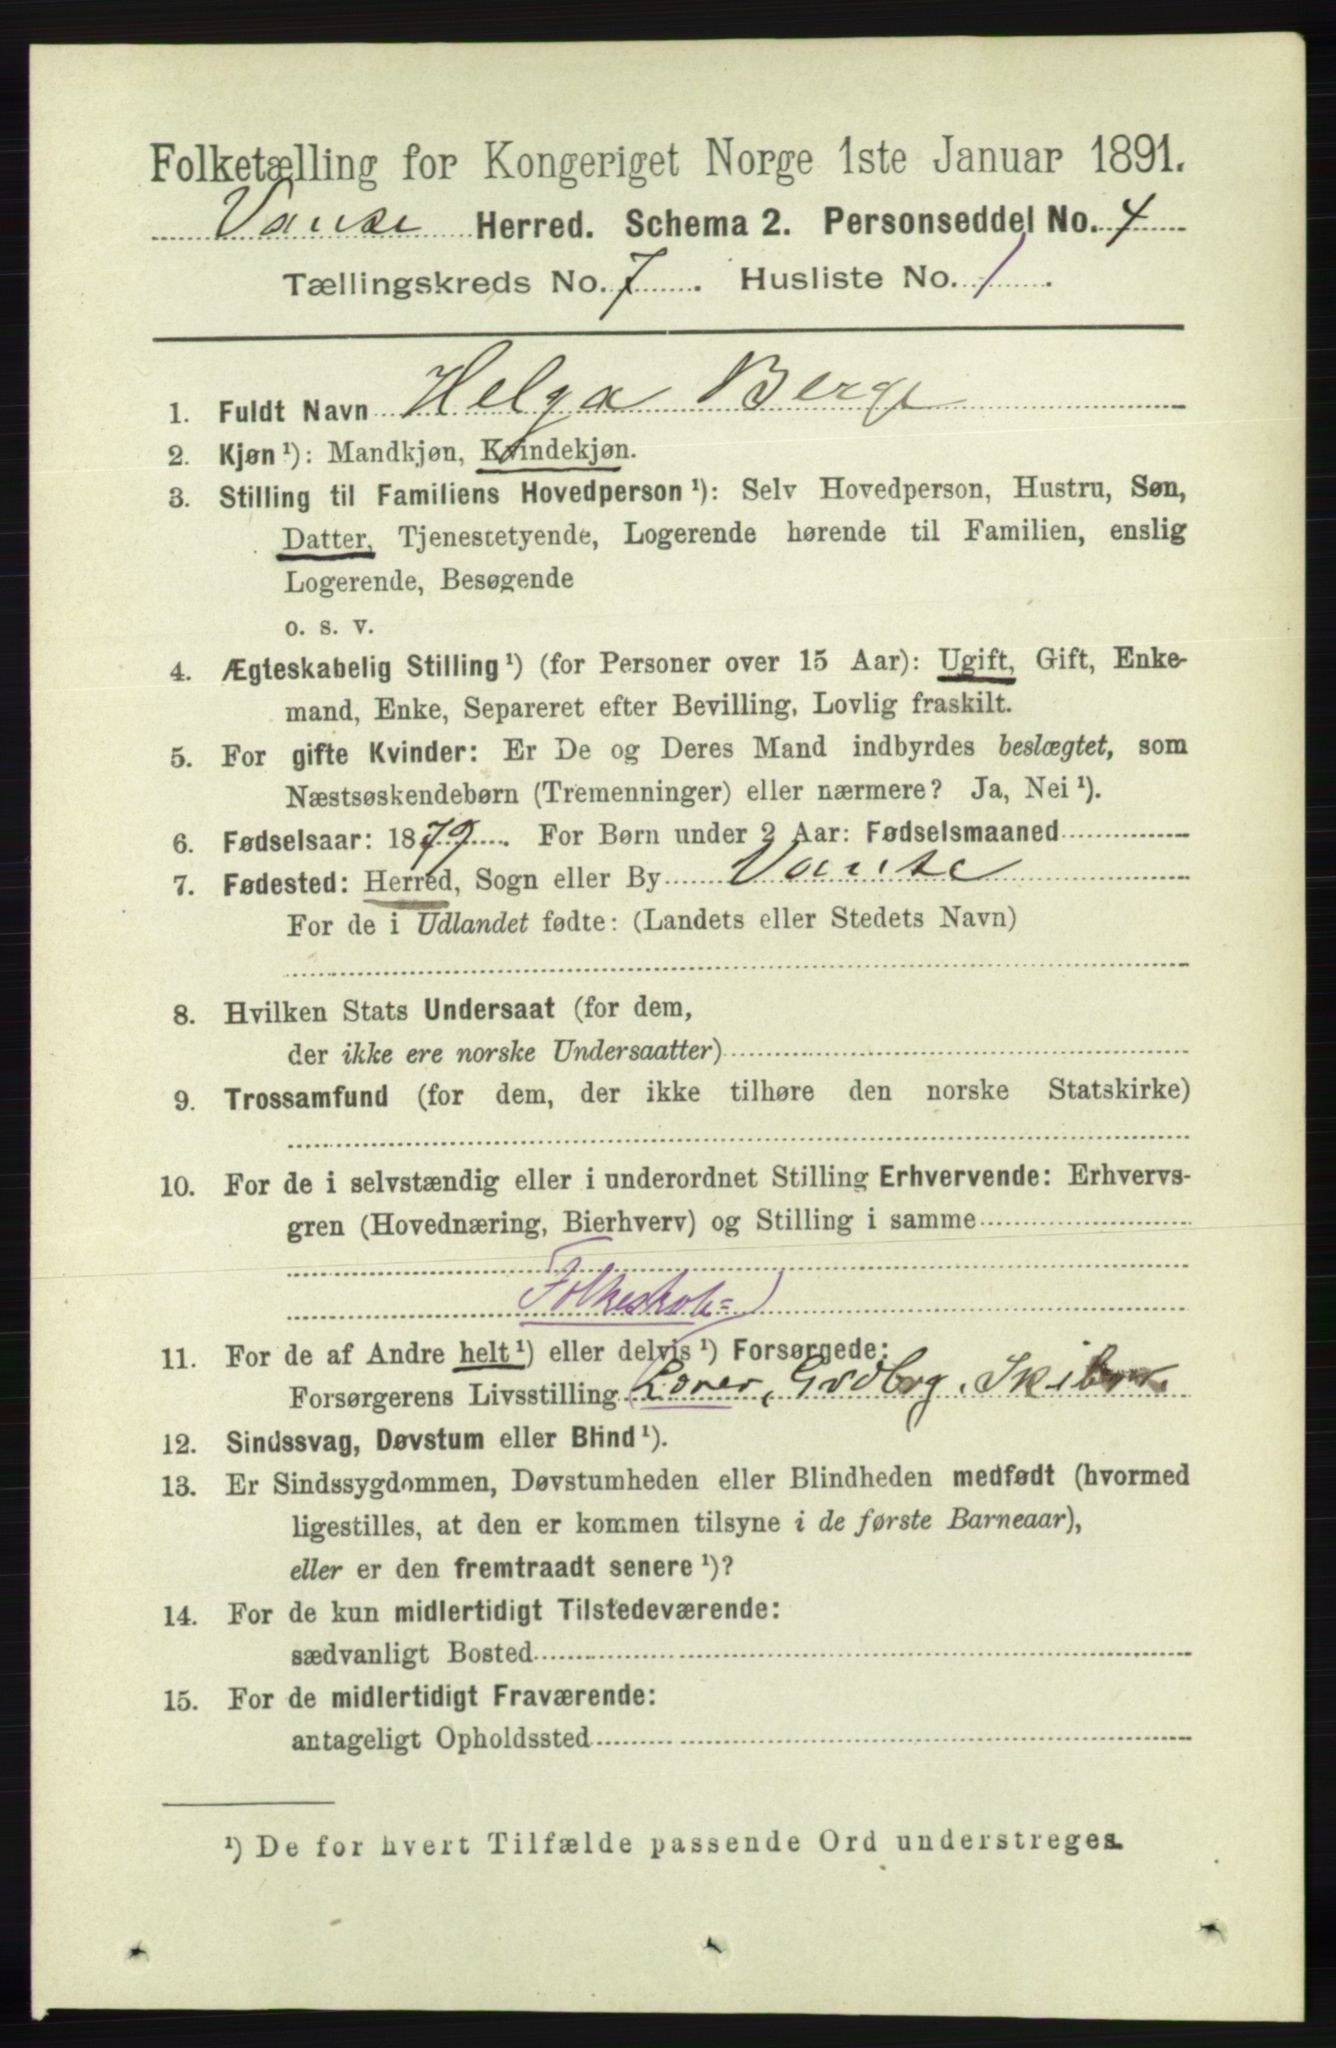 Folketælling for Kongeriget Norge 1ste Januar 1891.
Vanse Herred. Schema 2. Personseddel No. 4
Tællingskreds No. 7. Husliste No. 1.
1. Fuldt Navn Helga Berge
2. Kjøn ¹): Mandkjøn, Kvindekjøn.
3. Stilling til Familiens Hovedperson ¹): Selv Hovedperson, Hustru, Søn,
Datter, Tjenestetyende, Logerende hørende til Familien, enslig
Logerende, Besøgende
o. s. v.
4. Ægteskabelig Stilling ¹) (for Personer over 15 Aar): Ugift, Gift, Enke-
mand, Enke, Separeret efter Bevilling, Lovlig fraskilt.
5. For gifte Kvinder: Er De og Deres Mand indbyrdes beslægtet, som
Næstsøskendebørn (Tremenninger) eller nærmere? Ja, Nei ¹).
6. Fødselsaar: 1879. For Børn under 2 Aar: Fødselsmaaned
7. Fødested: Herred, Sogn eller By Vanse
For de i Udlandet fødte: (Landets eller Stedets Navn)
8. Hvilken Stats Undersaat (for dem,
der ikke ere norske Undersaatter)
9. Trossamfund (for dem, der ikke tilhøre den norske Statskirke)
10. For de i selvstændig eller i underordnet Stilling Erhvervende: Erhvervs-
gren (Hovednæring, Bierhverv) og Stilling i samme
Folkeskole=
11. For de af Andre helt ¹) eller delvis ¹) Forsørgede:
Forsørgerens Livsstilling Lærer, Grdbrg.
12. Sindssvag, Døvstum eller Blind ¹).
13. Er Sindssygdommen, Døvstumheden eller Blindheden medfødt (hvormed
ligestilles, at den er kommen tilsyne i de første Barneaar),
eller er den fremtraadt senere ¹)?
14. For de kun midlertidigt Tilstedeværende:
sædvanligt Bosted
15. For de midlertidigt Fraværende:
antageligt Opholdssted
¹) De for hvert Tilfælde passende Ord understreges.